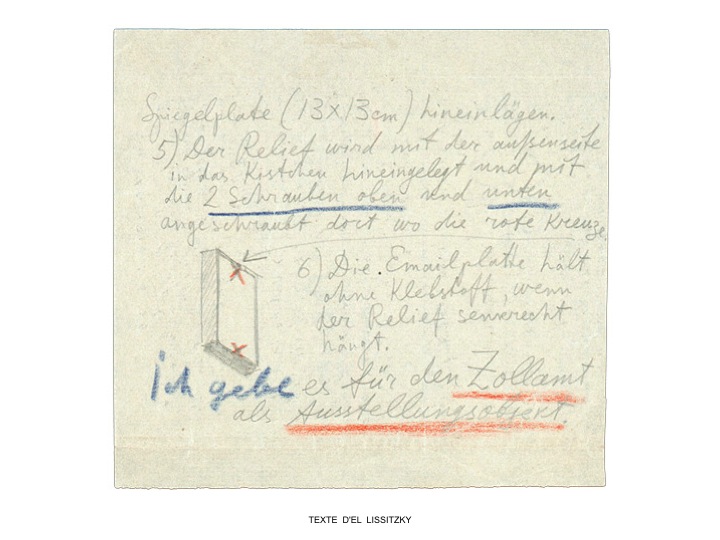 Spiegelplate (13×13cm) hineinlägen.
5) Der Relief wird mit der außenseite
in das Kistchen hineingelegt und mit
die 2 Schrauben oben und unten
angeschraubt dort wo die rote Kreuze.
6) Die Emailplatte hält
ohne Klebstoff, wenn
der Relief senkrecht
hängt.
Ich gebe es für den Zollamt
als Ausstellungsobjekt.
TEXTE D'EL LISSITZKY